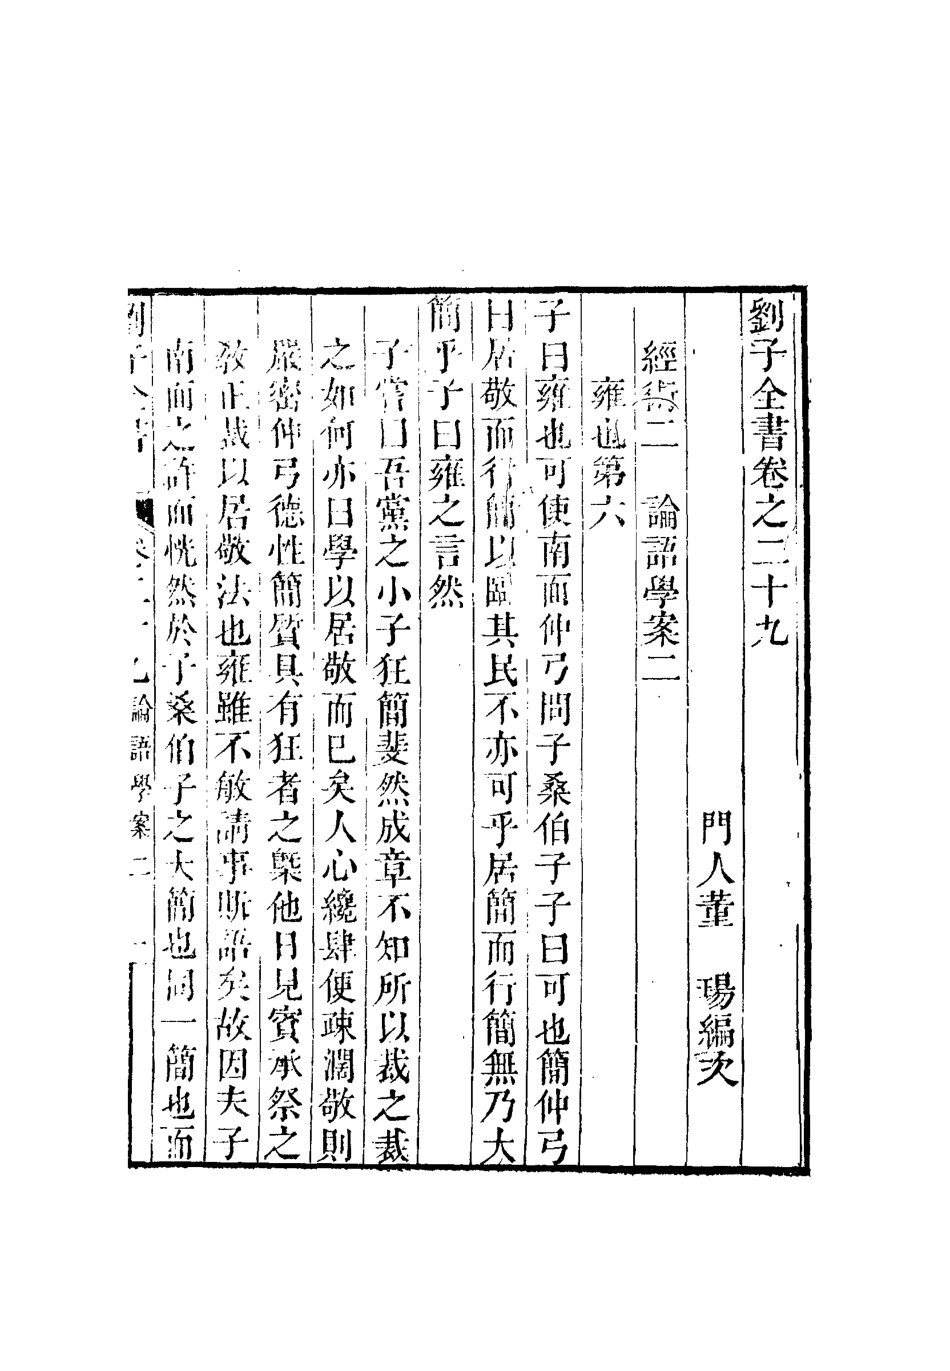 劉子全書卷之二十九
門人董　瑒編次
經術二　論語學案二
雍也第六
子曰雍也可使南面仲弓問子桑伯子子曰可也簡仲弓
曰居敬而行簡以臨其民不亦可乎居簡而行簡無乃大
簡乎子曰雍之言然
子嘗曰吾黨之小子狂簡斐然成章不知所以裁之裁
之如何亦曰學以居敬而已矣人心纔肆便疎濶敬則
嚴密仲弓德性簡質具有狂者之槩他日見賓承祭之
敎正裁以居敬法也雍雖不敏請事斯語矣故因夫子
南面之許而恍然於子桑伯子之大簡也同一簡也而
劉子全書　卷二十九論語學案二　一